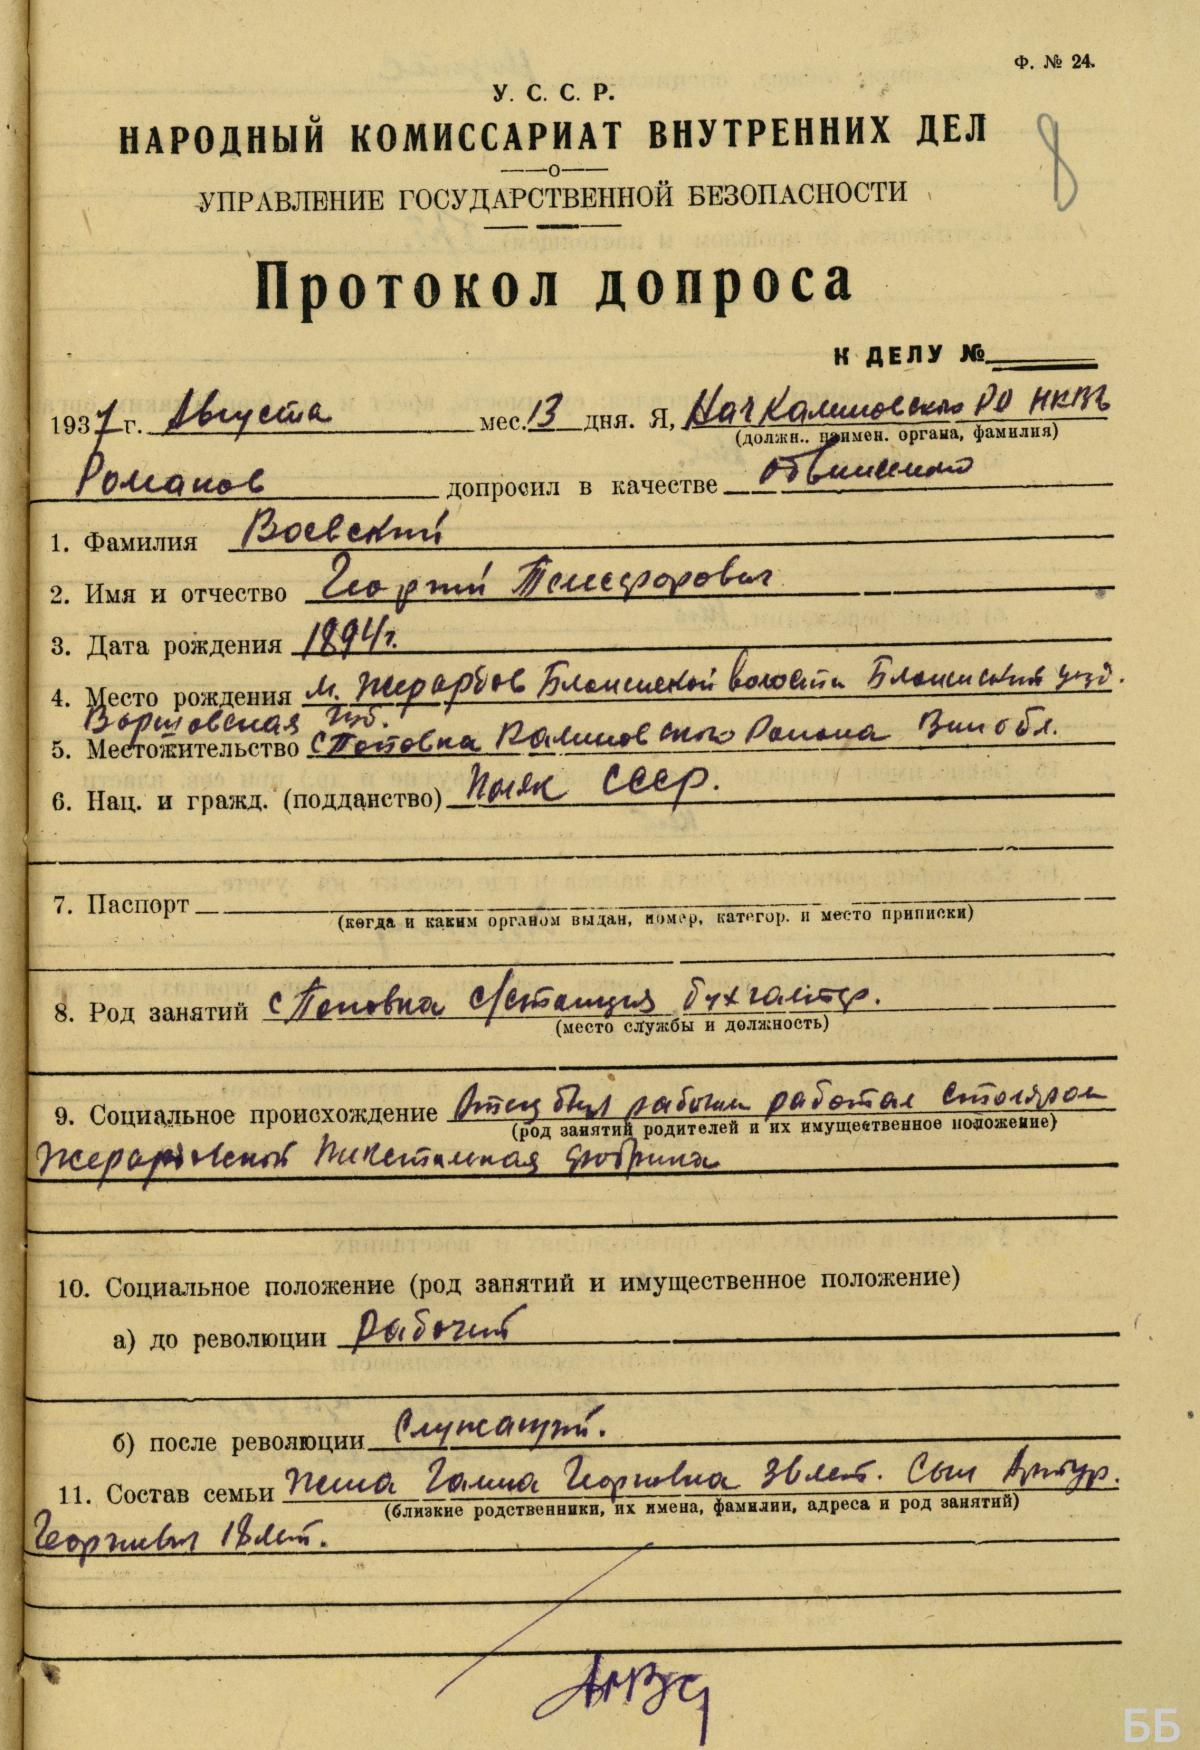 Ф. № 24.
8
У. С. С. Р.
НАРОДНЫЙ КОМИССАРИАТ ВНУТРЕННИХ ДЕЛ
УПРАВЛЕНИЕ ГОСУДАРСТВЕННОЙ БЕЗОПАСНОСТИ
Протокол допроса
К ДЕЛУ №
1937 г. Августа мес. 13 дня. Я, Нач Калиновского РО НКВД
(должн.. наимен. органа, фамилия)
Романов допросил в качестве
1. Фамилия Воевский
2. Имя и отчество Георгий Телесфорович
3. Дата рождения 1894 г.
4. Место рождения м. Жерардов Блонской волости Блонский уезд.
Варшовская губ.
5. Местожительство с Поповка Калиновского Района Вин обл.
6. Нац. и гражд. (подданство) Поляк СССР.
7. Паспорт
(когда и каким органом выдан, номер, категор. и место приписки)
8. Род занятий с Поповка с/станция бухгалтер.
(место службы и должность)
9. Социальное происхождение Отец был рабочим работал столяром
(род занятий родителей и их имущественное положение)
Жерардовской фабрика
10. Социальное положение (род занятий и имущественное положение)
а) до революции Рабочий
б) после революции Служащий.
11. Состав семьи Жена Галина Георговна 36 лет. Сын Артур.
(близкие родственники, их имена, фамилии, адреса и род занятий)
Георгиевич 18 лет.
ББ